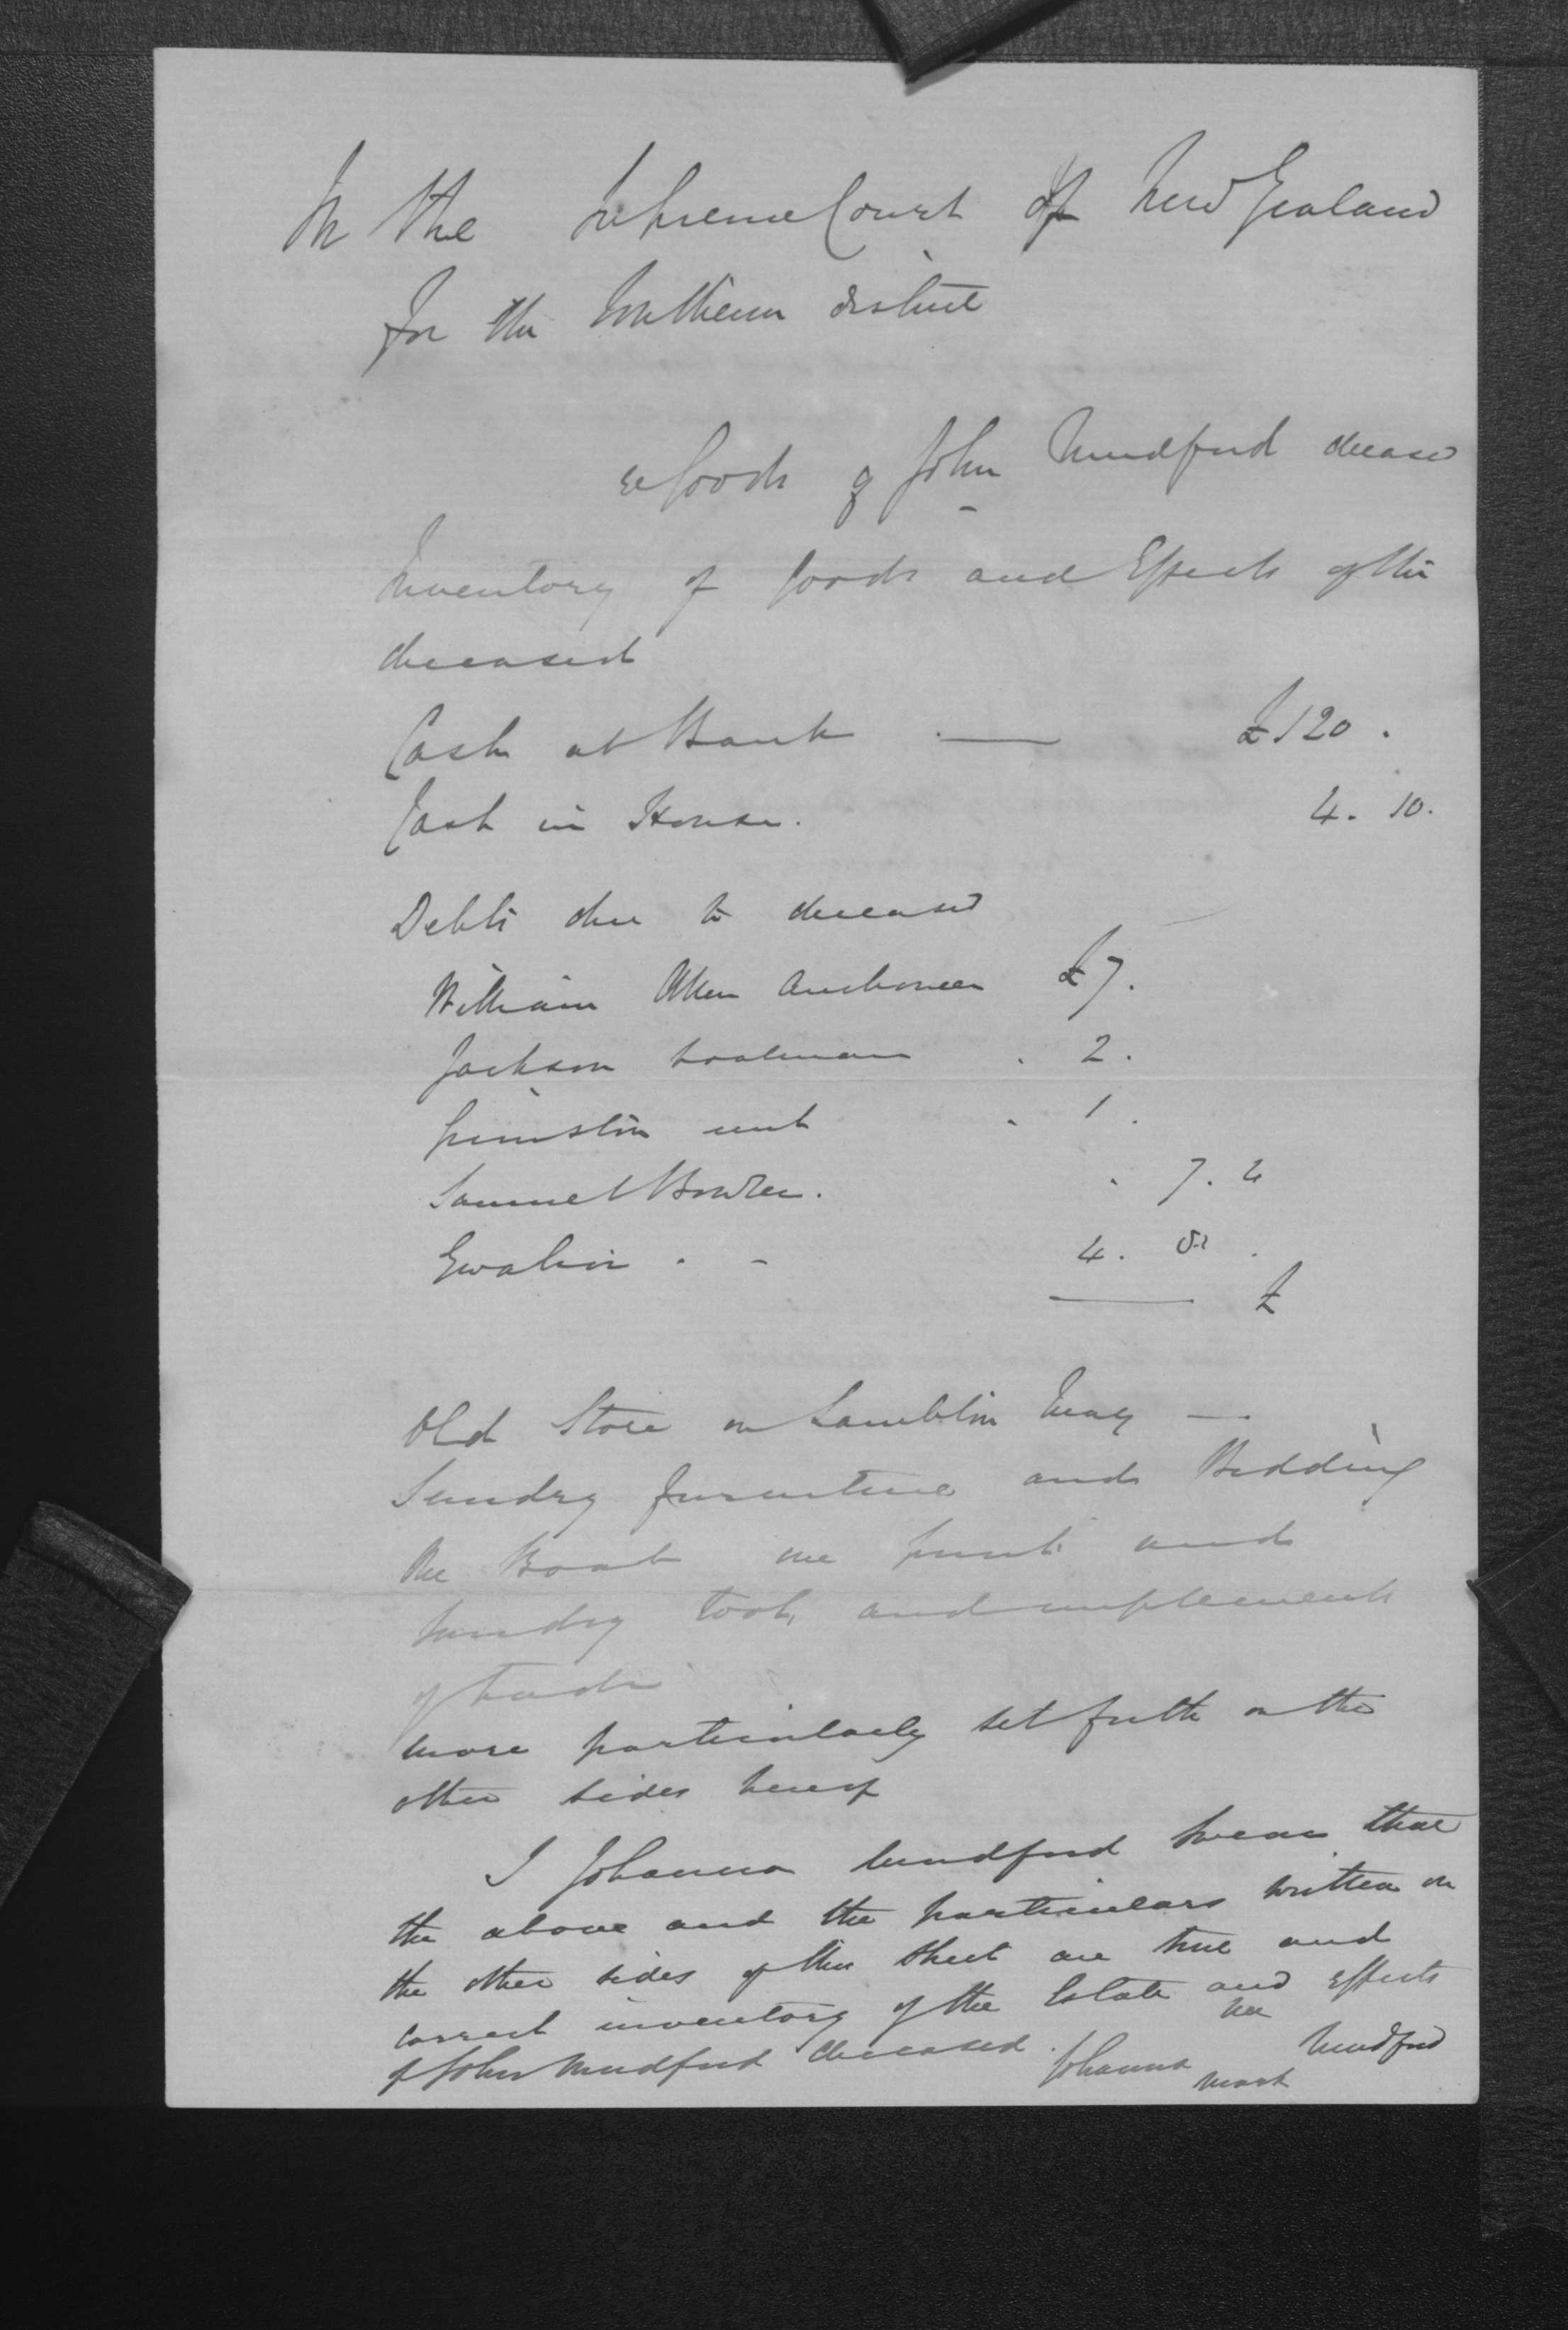 In the Supreme Court of New Zealand
For the Northern district
re Goods of John Mundford deceased
Inventory of Goods and Effects of the
deceased
Cash at Bank — £120 .
Cash in House. 4. 10.
Debts due to deceased
William Aken Auctioneer £7.
Jackson boatman . 2 .
. 1 .
Samuel . 7. 4
4. .
£
Old Store on Lambton Quay —.
Sundry furniture and Bedding
One Boat one punt and
Sundry tools and implements
of trade
more particularly set forth on the
other sides hereof
I Johanna Mundford swear that
the above and the particulars written on
the other sides of this sheet are true and
correct inventory of the Estate and effects
of John Mundford deceased. Johanna her mark Mundford